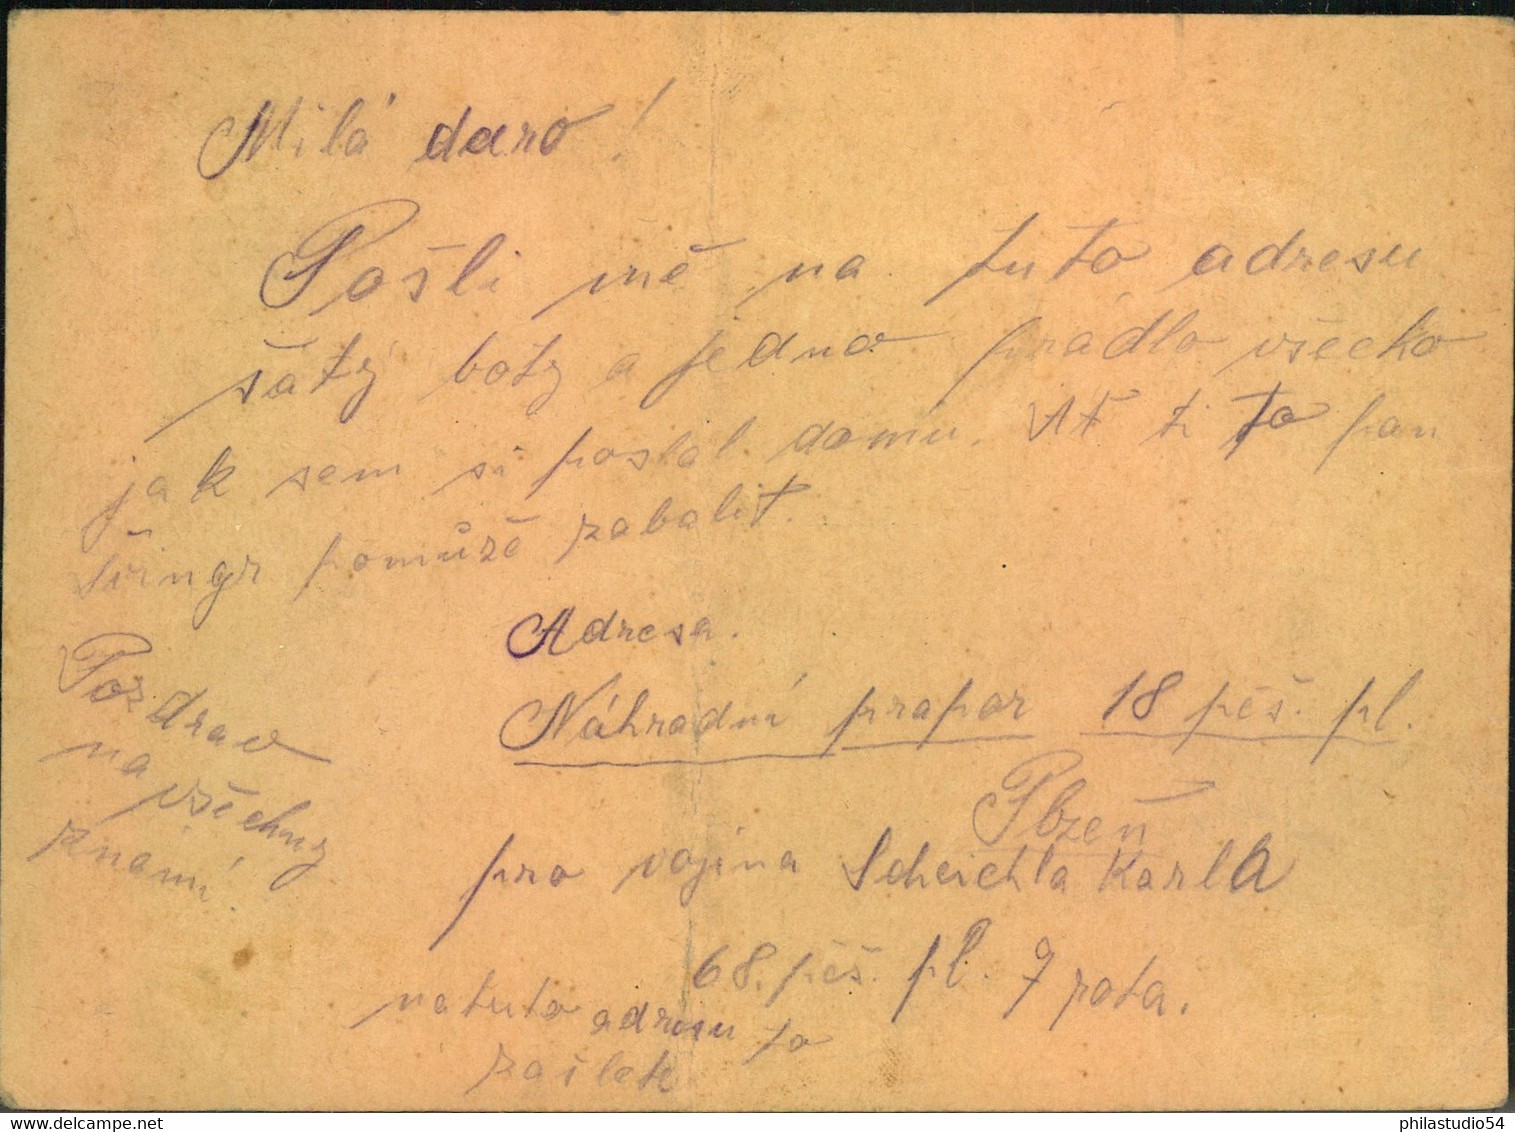 Milá daro!
Pošli mě na tuto adresu
šaty boty a jedno prádlo všecko
jak sem si poslal domu. Ať ti to pan
Šringr pomůžě zabalit.
Adresa.
Náhradní prapor 18 pěš. pl.
Plzeň
pro vojina Scheichla Karla
68. pěš. pl. 7 rota.
na tuto adresu to
zašlete
Pozdrav
na všechny
známí.
www.delcampe.net
philastudio54